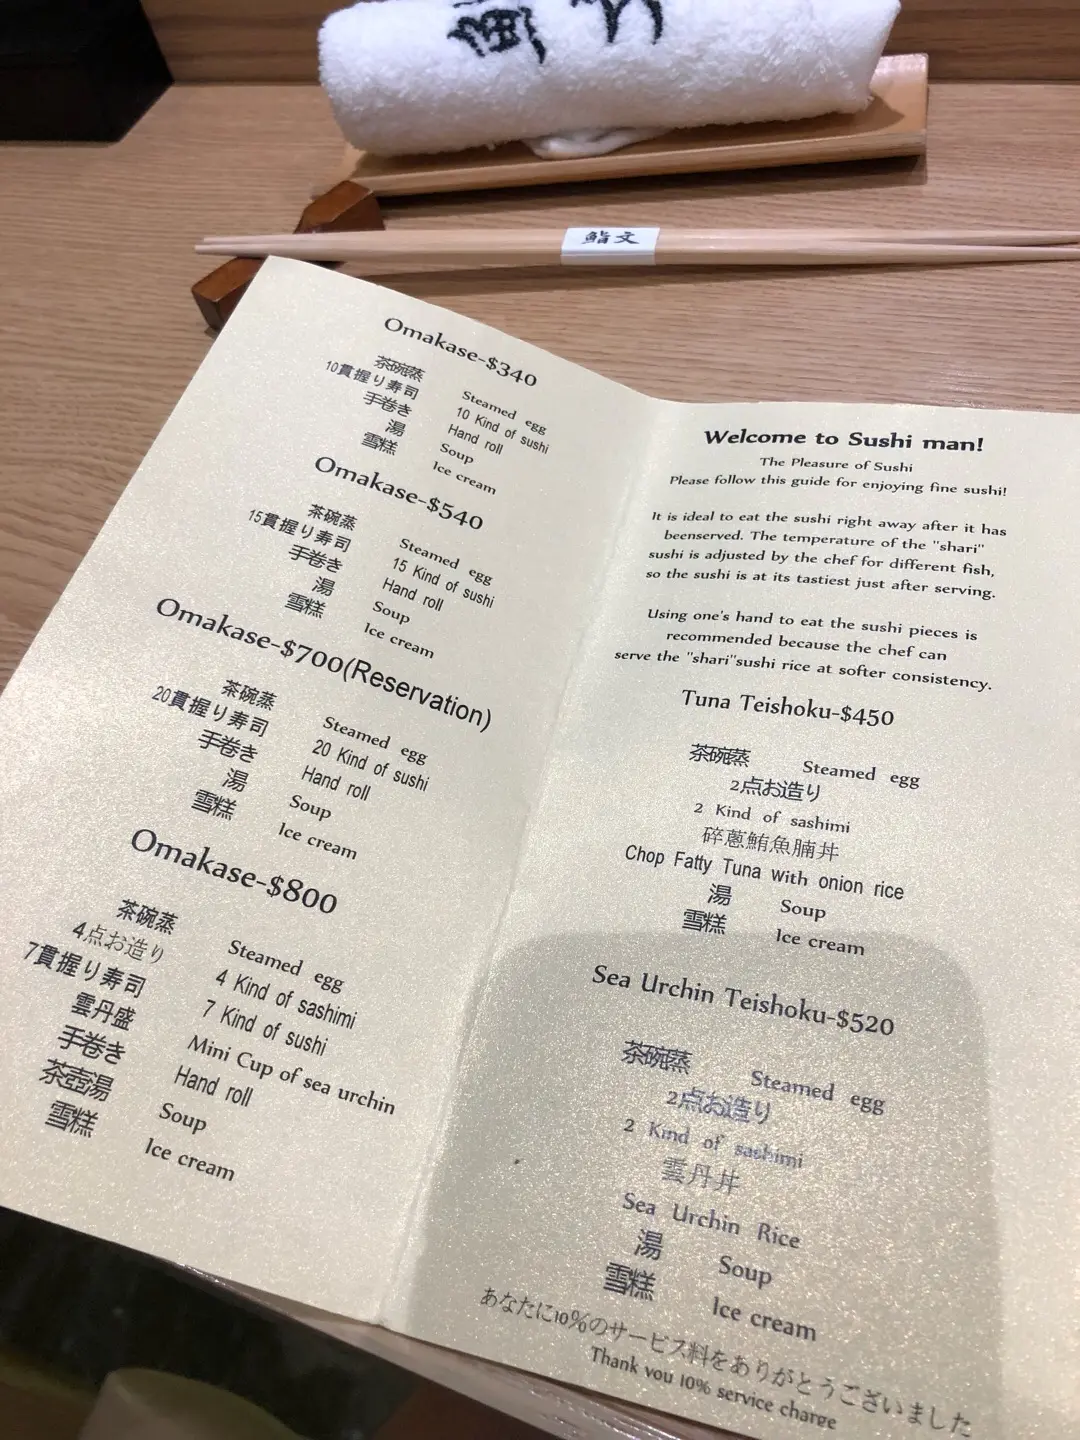 鮨文
Omakase-$340
茶碗蒸 Steamed egg
10貫握り寿司 10 Kind of sushi
手巻き Hand roll
湯 Soup
雪糕 Ice cream
Omakase-$540
茶碗蒸 Steamed egg
15貫握り寿司 15 Kind of sushi
手巻き Hand roll
湯 Soup
雪糕 Ice cream
Omakase-$700(Reservation)
茶碗蒸 Steamed egg
20貫握り寿司 20 Kind of sushi
手巻き Hand roll
湯 Soup
雪糕 Ice cream
Omakase-$800
茶碗蒸 Steamed egg
4点お造り 4 Kind of sashimi
7貫握り寿司 7 Kind of sushi
雲丹盛 Mini Cup of sea urchin
手巻き Hand roll
茶壺湯 Soup
雪糕 Ice cream
Welcome to Sushi man!
The Pleasure of Sushi
Please follow this guide for enjoying fine sushi!
It is ideal to eat the sushi right away after it has
beenserved. The temperature of the "shari"
sushi is adjusted by the chef for different fish,
so the sushi is at its tastiest just after serving.
Using one's hand to eat the sushi pieces is
recommended because the chef can
serve the "shari"sushi rice at softer consistency.
Tuna Teishoku-$450
茶碗蒸 Steamed egg
2点お造り
2 Kind of sashimi
碎蔥鮪魚腩丼
Chop Fatty Tuna with onion rice
湯 Soup
雪糕 Ice cream
Sea Urchin Teishoku-$520
茶碗蒸 Steamed egg
2点お造り
2 Kind of sashimi
雲丹丼
Sea Urchin Rice
湯 Soup
雪糕 Ice cream
あなたに10%のサービス料をありがとうございました
Thank you 10% service charge